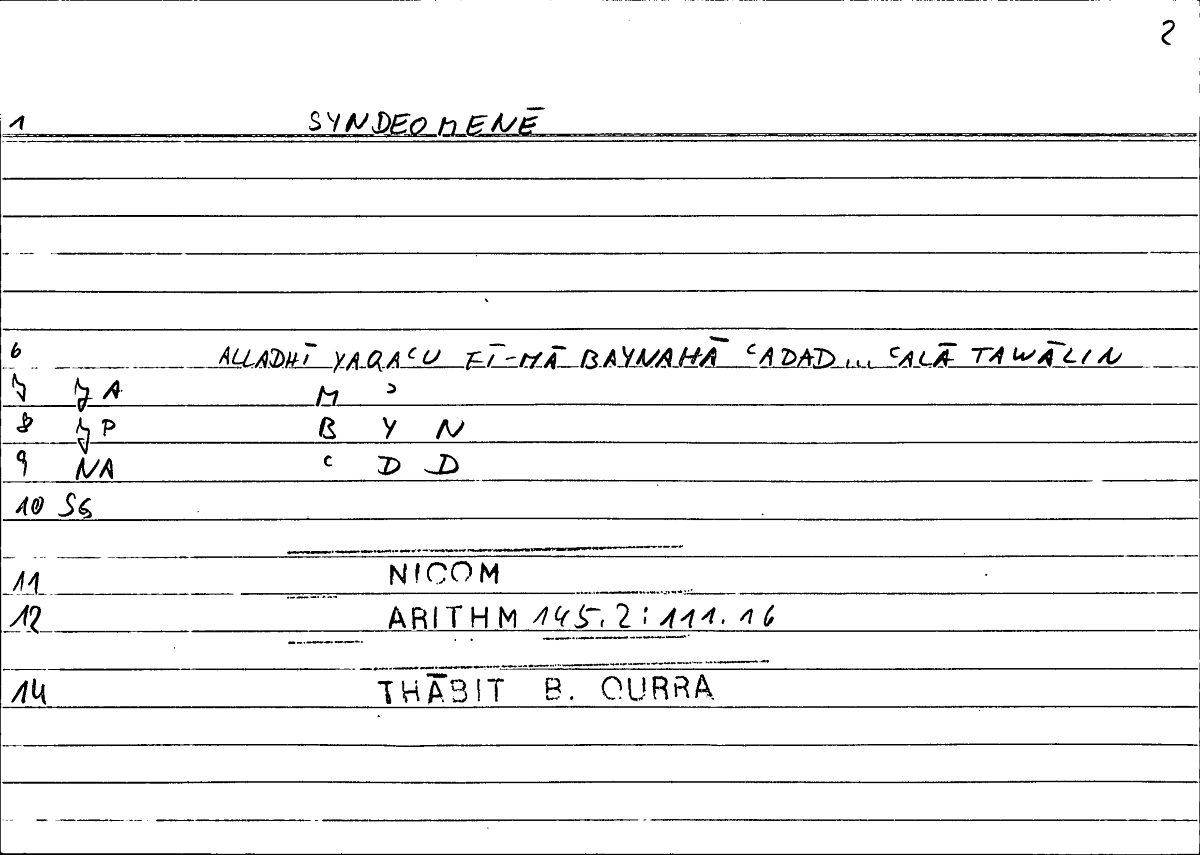 2
1 SYNDEOMENĒ
6 ALLADHĪ YAQAʿU FĪ-MĀ BAYNAHĀ ʿADAD... ʿALĀ TAWĀLIN
7 JA M ʾ
8 JP B Y N
9 NA ʿ D D
10 SG
11 NICOM
12 ARITHM 145.2:111.16
14 THĀBIT B. QURRA